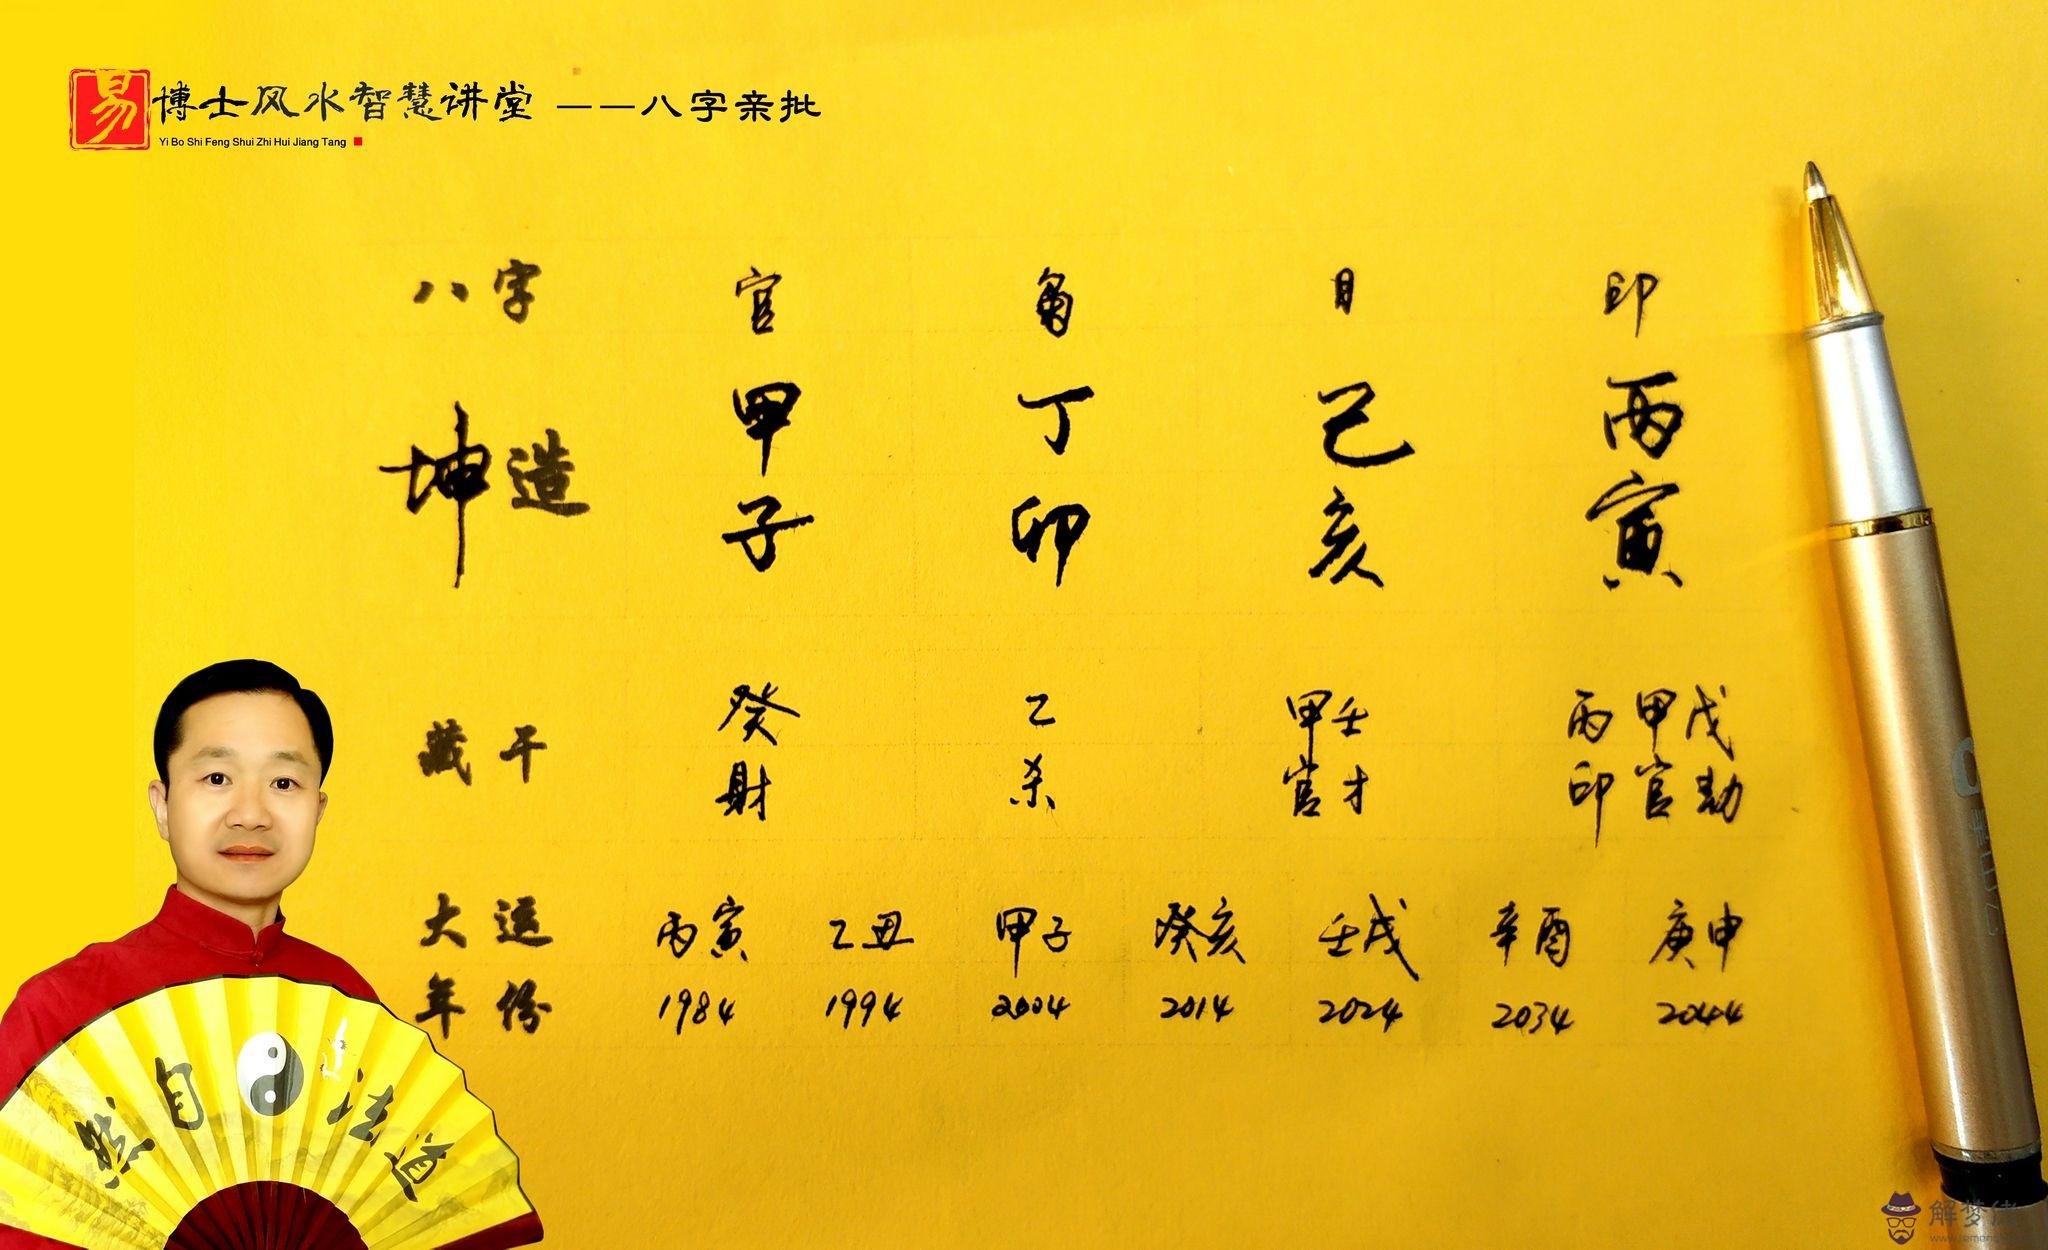 易 博士风水智慧讲堂 ——八字亲批
Yi Bo Shi Feng Shui Zhi Hui Jiang Tang
八字 官 日 印
坤造 甲 丁 己 丙
子 卯 亥 寅
藏干 癸 乙 甲壬 丙甲戊
財 杀 官才 印官劫
大运 丙寅 乙丑 甲子 癸亥 壬戌 辛酉 庚申
年份 1984 1994 2004 2014 2024 2034 2044
然自法道
解梦佬